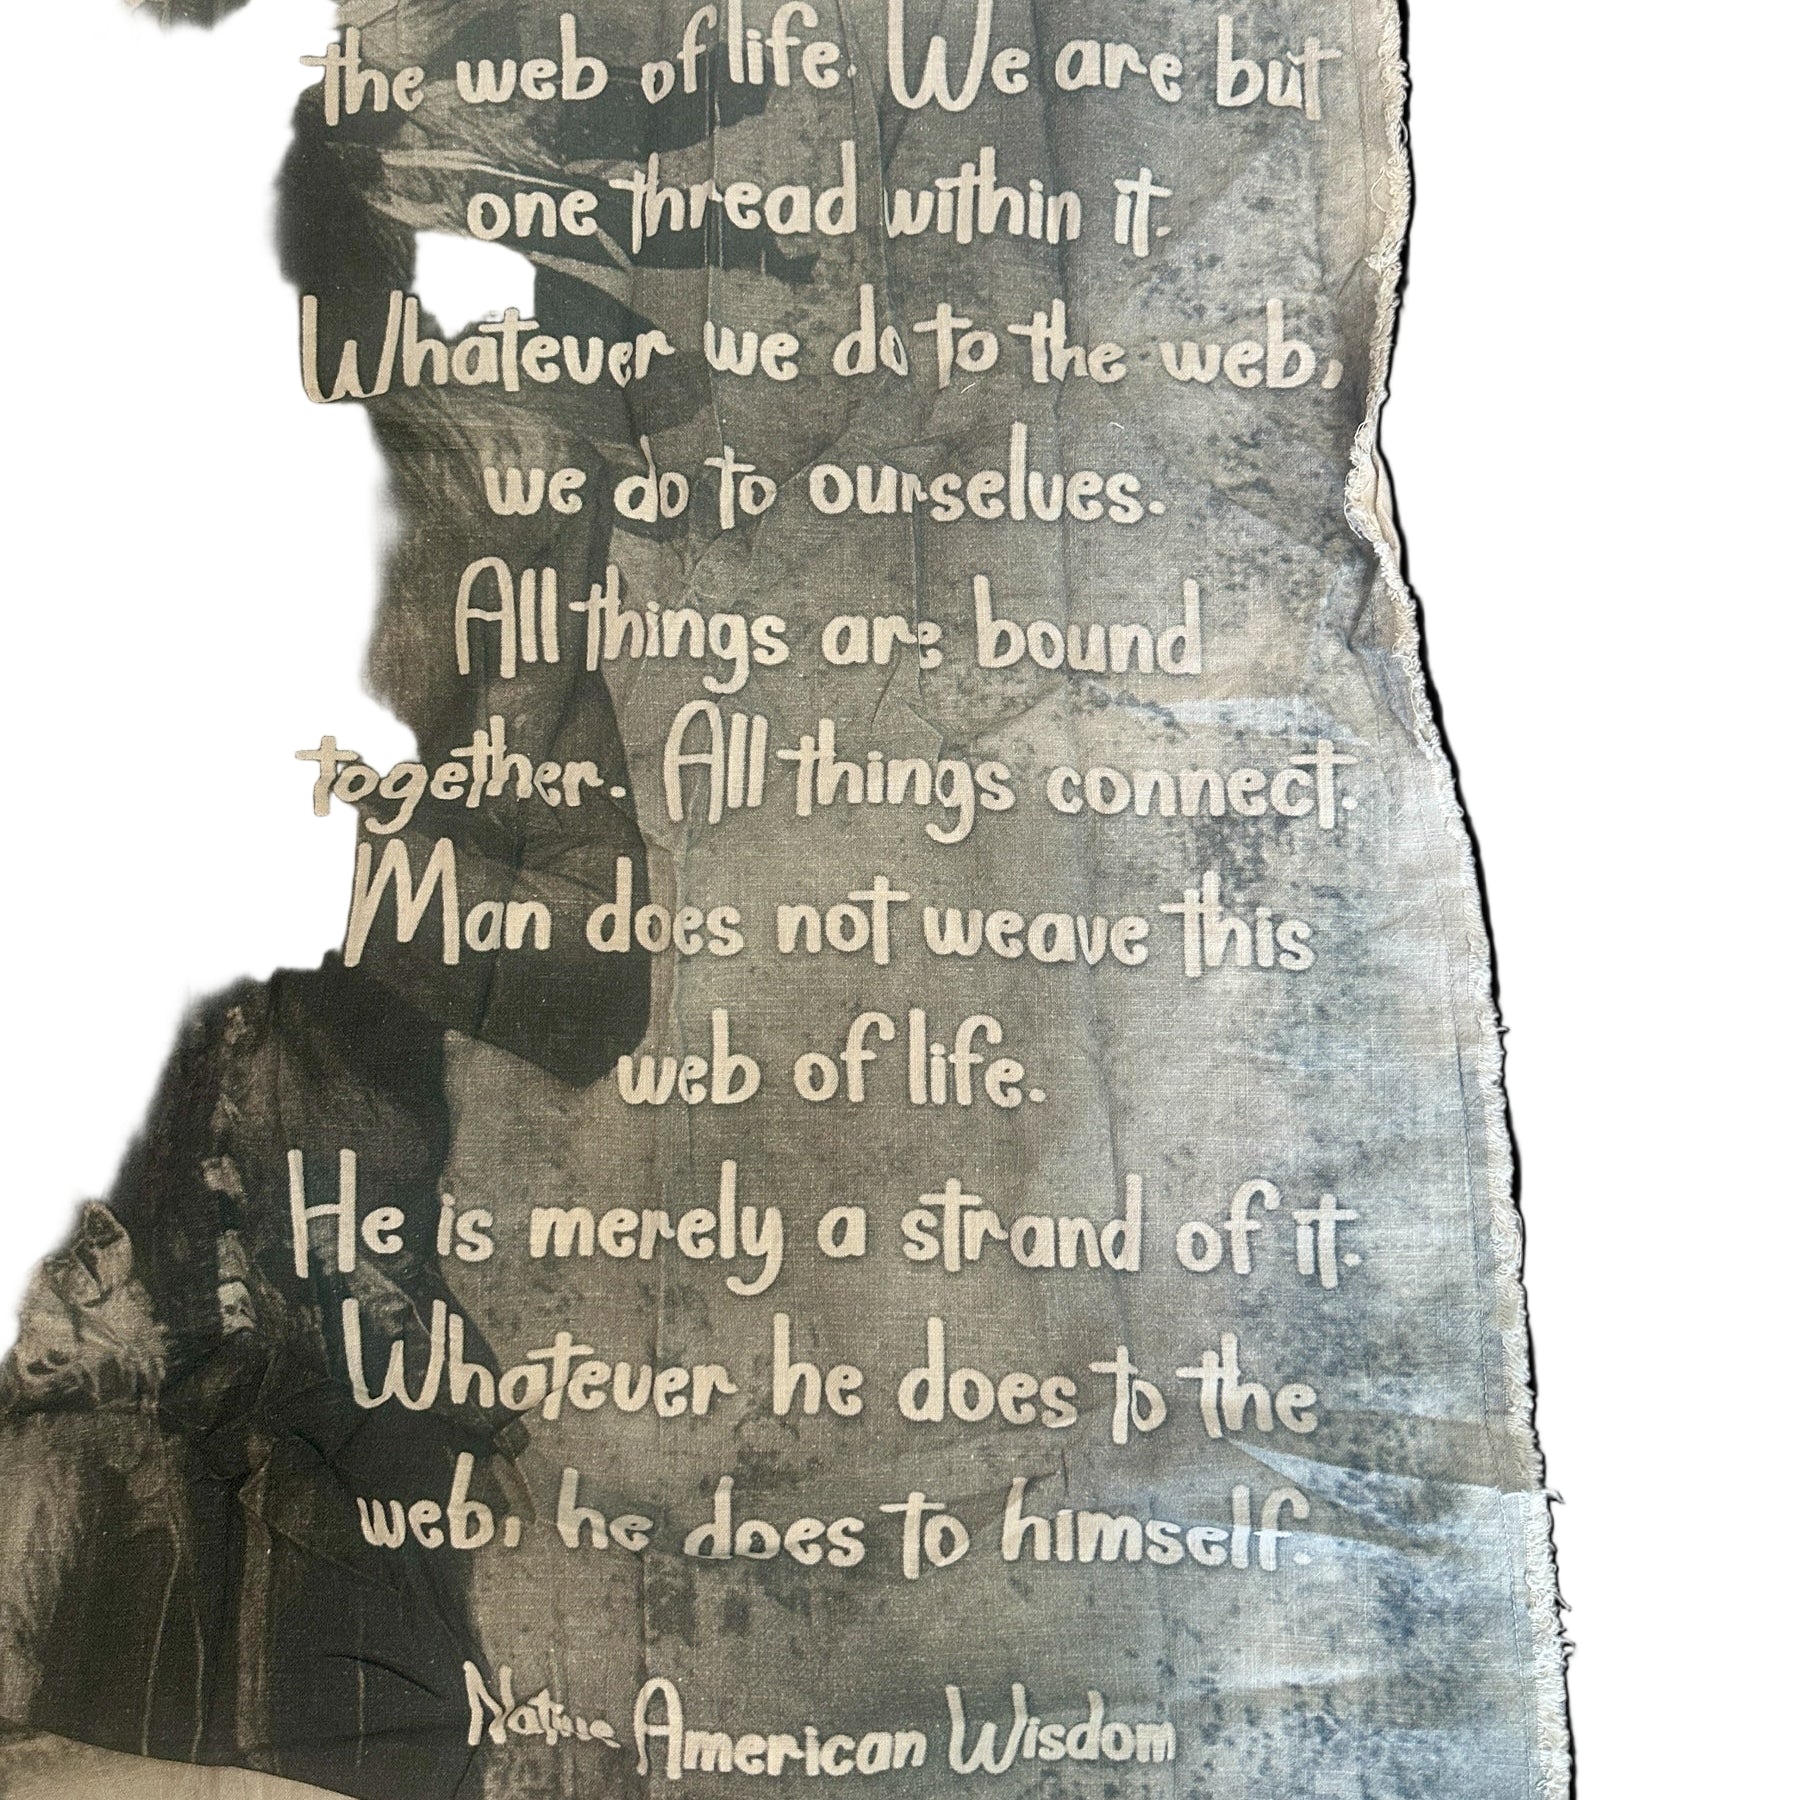 the web of life. We are but
one thread within it.
Whatever we do to the web,
we do to ourselves.
All things are bound
together. All things connect.
Man does not weave this
web of life.
He is merely a strand of it.
Whatever he does to the
web, he does to himself.
Native American Wisdom